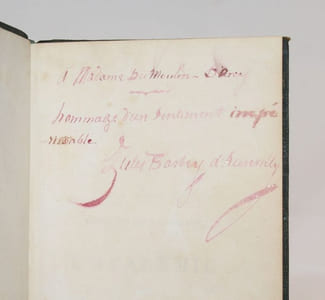 A Madame Du Moulin-Darcy
hommage d'un sentiment impé
rissable
Jules Barbey d'Aurevilly